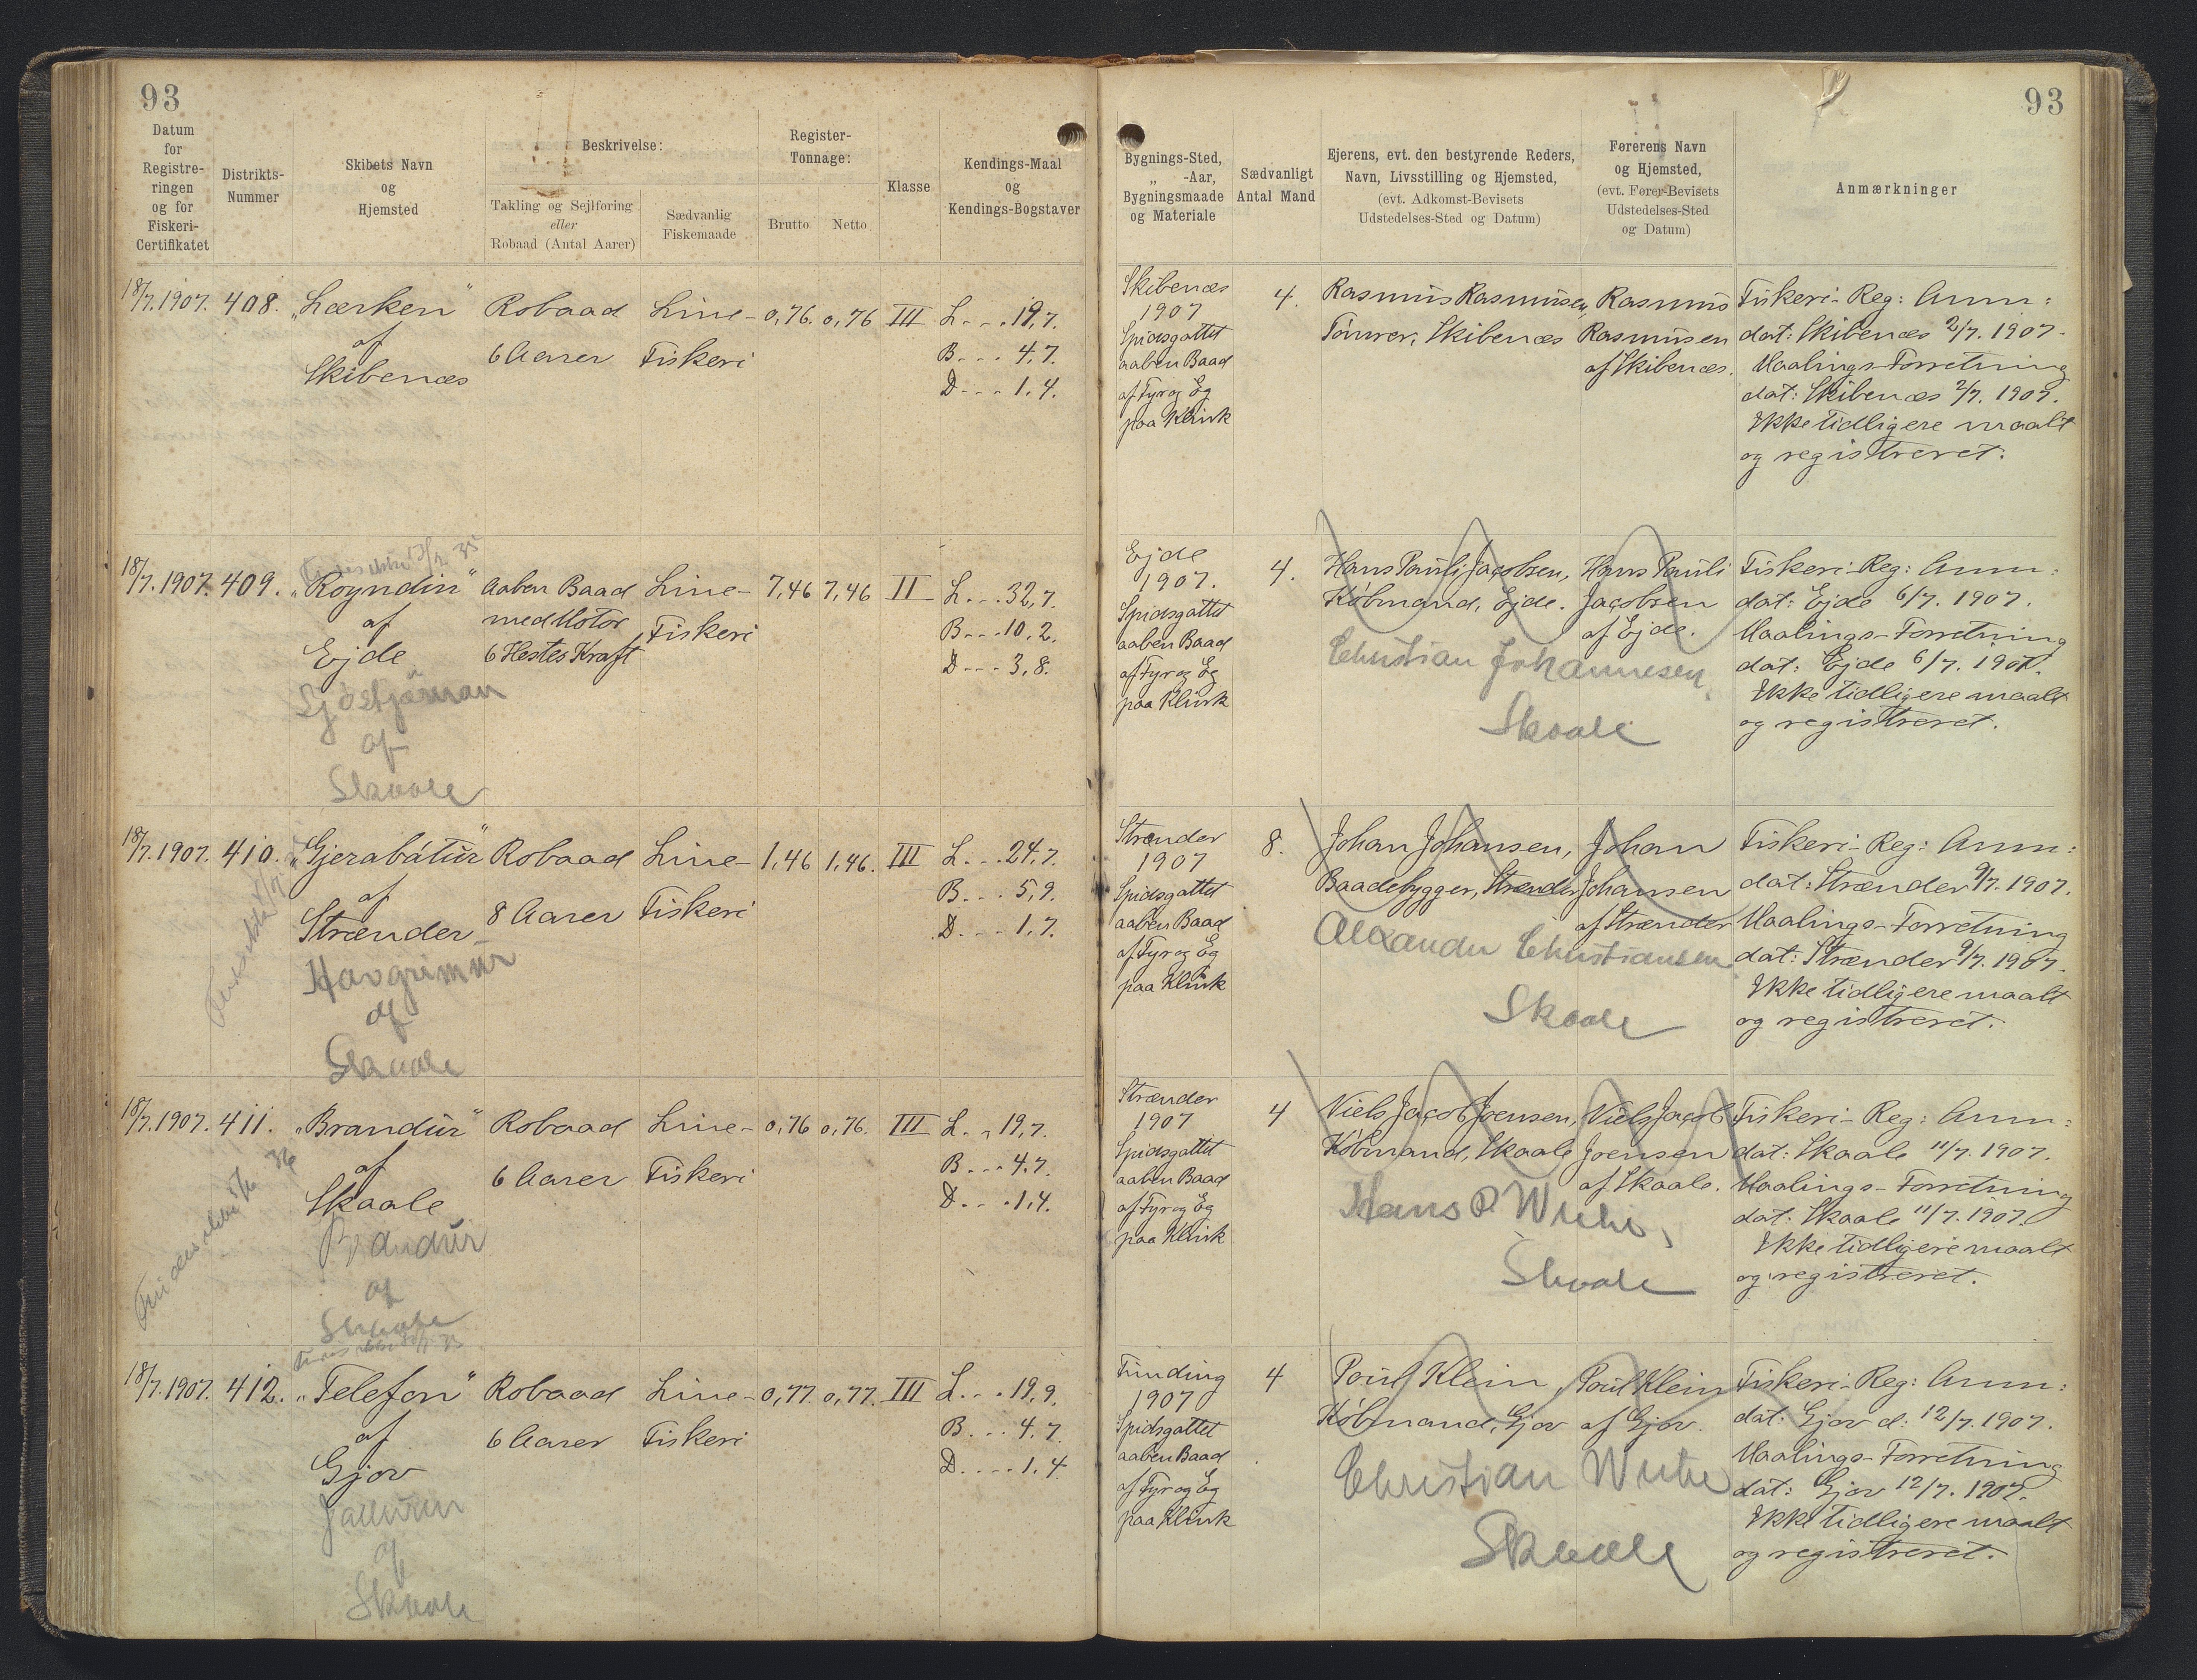 93
93
Datum
for
Registre-
ringen
og for
Fiskeri-
Certifikatet
Distrikts-
Nummer
Skibets Navn
og
Hjemsted
Beskrivelse:
Takling og Sejlføring
eller
Robaad (Antal Aarer)
Sædvanlig
Fiskemaade
Register-
Tonnage:
Brutto
Netto
Klasse
Kendings-Maal
og
Kendings-Bogstaver
Bygnings-Sted,
„ -Aar,
Bygningsmaade
og Materiale
Sædvanligt
Antal Mand
Ejerens, evt. den bestyrende Reders,
Navn, Livsstilling og Hjemsted,
(evt. Adkomst-Bevisets
Udstedelses-Sted og Datum)
Førerens Navn
og Hjemsted,
(evt. Fører-Bevisets
Udstedelses-Sted
og Datum)
Anmærkninger
18/7. 1907.
408.
„Lærken"
af
Skibenæs
Robaad
6 Aarer
Line-
Fiskeri
0,76.
0,76
III
L. . . 19,7.
B. . . 4.7.
D. . . 1.4.
Skibenæs
1907
Spidsgattet
aaben Baad
af Fyr og Eg
paa Klink
4.
Rasmus Rasmusen,
Tømrer, Skibenæs
Rasmus
Rasmusen
af Skibenæs.
Fiskeri-Reg: Anm:
dat: Skibenæs 2/7. 1907.
Maalings-Forretning
dat: Skibenæs 2/7. 1907.
Ikke tidligere maalt
og registreret.
18/7. 1907.
409.
„Royndin"
af
Ejde
af
Skaale
Aaben Baad
med Motor
6 Hestes Kraft
Line-
Fiskeri
7,46
7,46
II
L. . . 32,7.
B. . . 10,2.
D. . . 3,8.
Ejde
1907.
Spidsgattet
aaben Baad
af Fyr og Eg
paa Klink
4.
Hans Pauli Jacobsen,
Købmand, Ejde.
Christian Johannesen,
Skaale
Hans Pauli
Jacobsen
af Ejde.
Fiskeri-Reg: Anm:
dat: Ejde 6/7. 1907.
Maalings-Forretning
dat: Ejde 6/7. 1907.
Ikke tidligere maalt
og registreret.
18/7. 1907.
410.
„Gjerabátur"
af
Strænder
Havgrimur
af
Skaale
Robaad
8 Aarer
Line-
Fiskeri
1,46
1,46.
III
L. . . 24,7.
B. . . 5,9.
D. . . 1,7.
Strænder
1907
Spidsgattet
aaben Baad
af Fyr og Eg
paa Klink
8.
Johan Johansen,
Baadebygger, Strænder
Alexander Christiansen
Skaale
Johan
Johansen
af Strænder
Fiskeri-Reg: Anm:
dat: Strænder 9/7. 1907.
Maalings-Forretning
dat: Strænder 9/7. 1907.
Ikke tidligere maalt
og registreret.
18/7. 1907.
411.
„Brandur"
af
Skaale
Brandur
af
Skaale
Robaad
6 Aarer
Line-
Fiskeri
0,76
0,76.
III
L. . 19,7.
B. . . 4.7.
D. . . 1,4.
Strænder
1907
Spidsgattet
aaben Baad
af Fyr og Eg
paa Klink
4
Niels Jacob Joensen,
Købmand, Skaale
Hans P. Wiehe,
Skaale
Niels Jacob
Joensen
af Skaale.
Fiskeri-Reg: Anm:
dat: Skaale 11/7. 1907.
Maalings-Forretning
dat: Skaale 11/7. 1907.
Ikke tidligere maalt
og registreret.
18/7. 1907.
412.
„Telefon"
af
Gjov
af
Skaale
Robaad
6 Aarer
Line-
Fiskeri
0,77.
0,77.
III
L. . . 19,9.
B. . . 4,7.
D. . . . 1,4
Funding
1907
Spidsgattet
aaben Baad
af Fyr og Eg
paa Klink
4
Poul Klein,
Købmand, Gjov
Christian Wiehe
Skaale
Poul Klein
af Gjov.
Fiskeri-Reg: Anm:
dat: Gjov d: 12/7. 1907.
Maalings-Forretning
dat: Gjov 12/7. 1907.
Ikke tidligere maalt
og registreret.